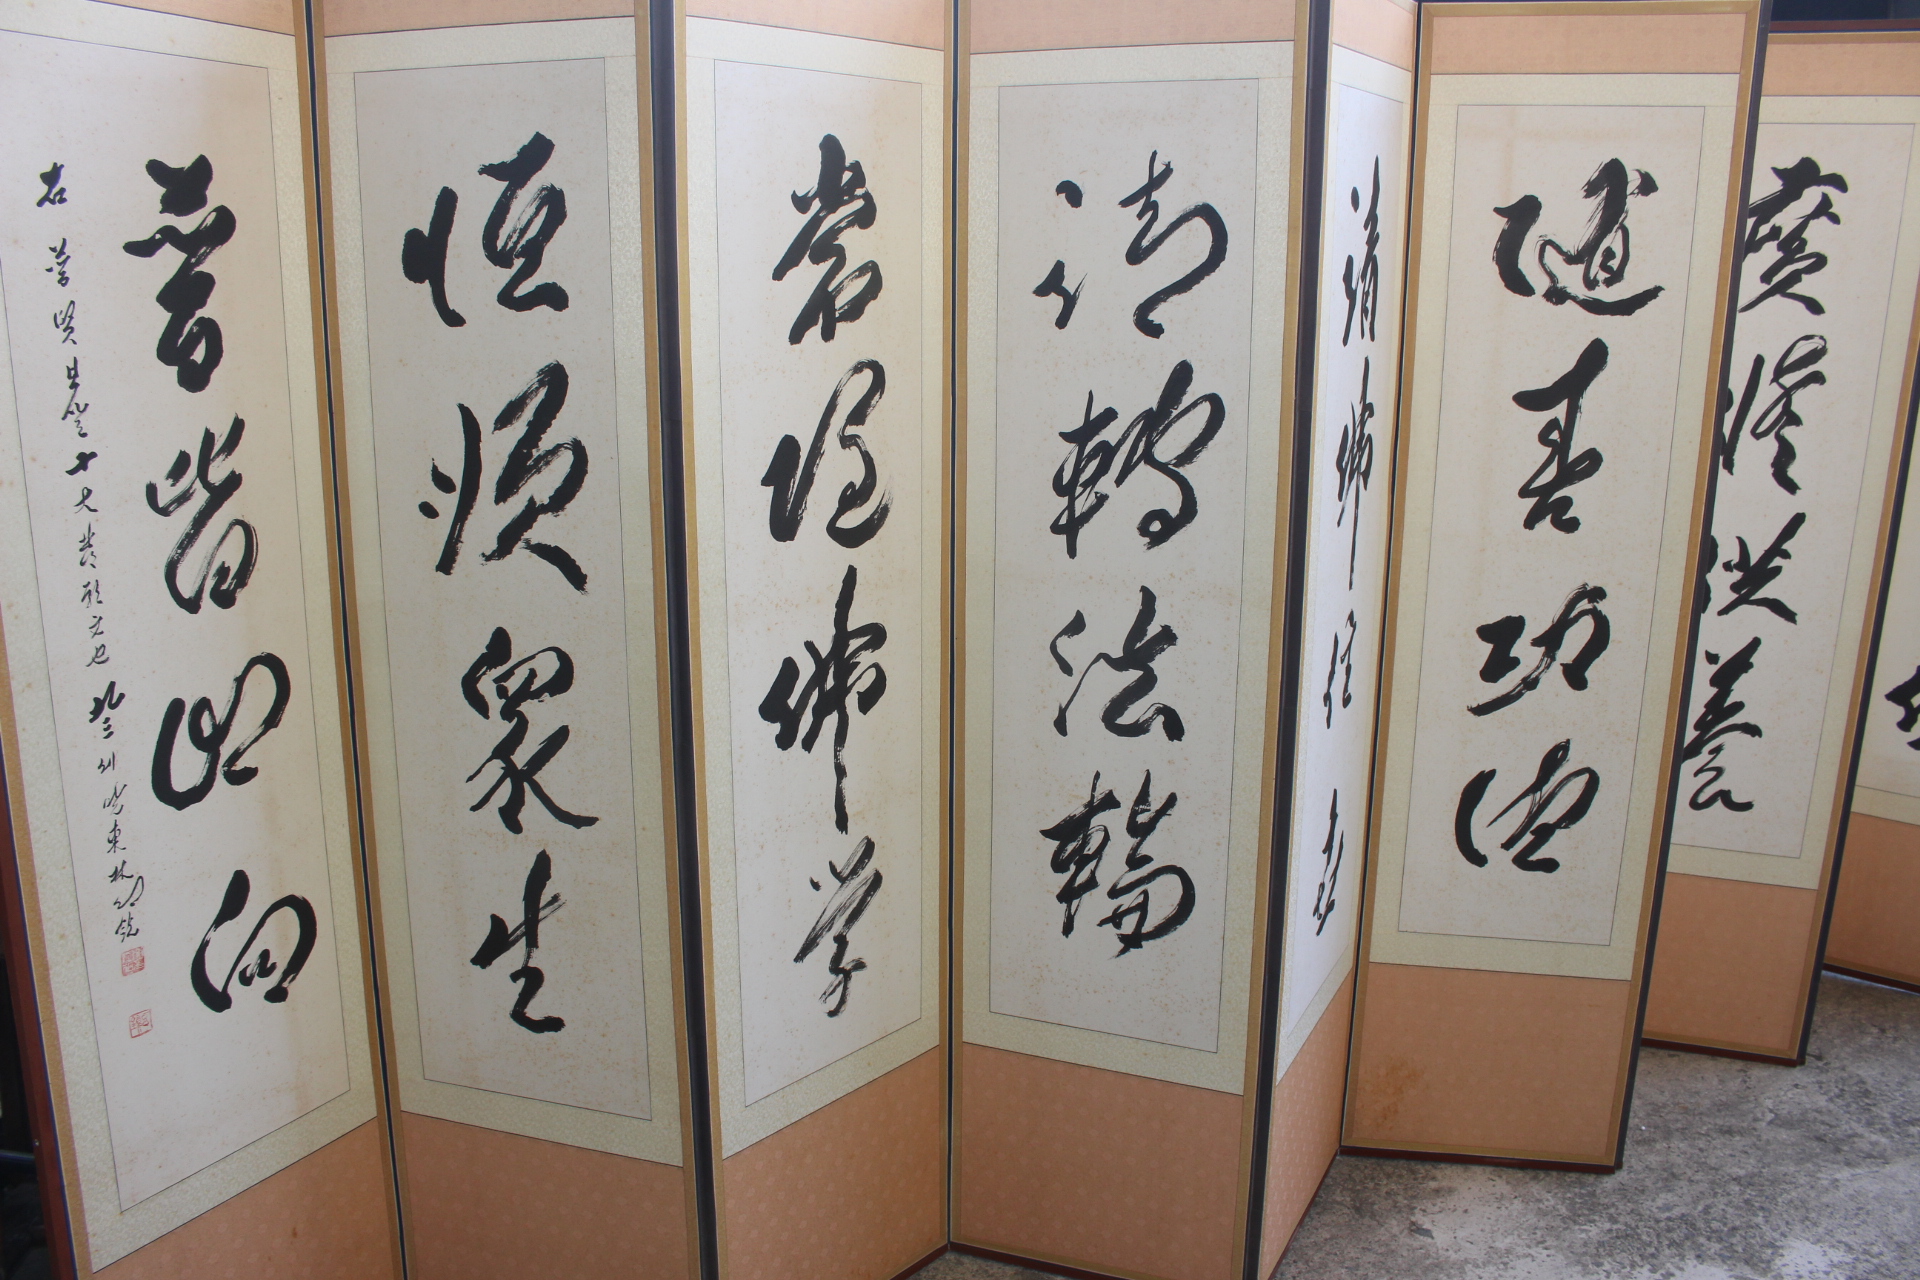 廣修供養
隨喜功德
請佛住世
請轉法輪
常隨佛學
恒順衆生
普皆廻向
右普賢菩薩十大發願文也 曉東